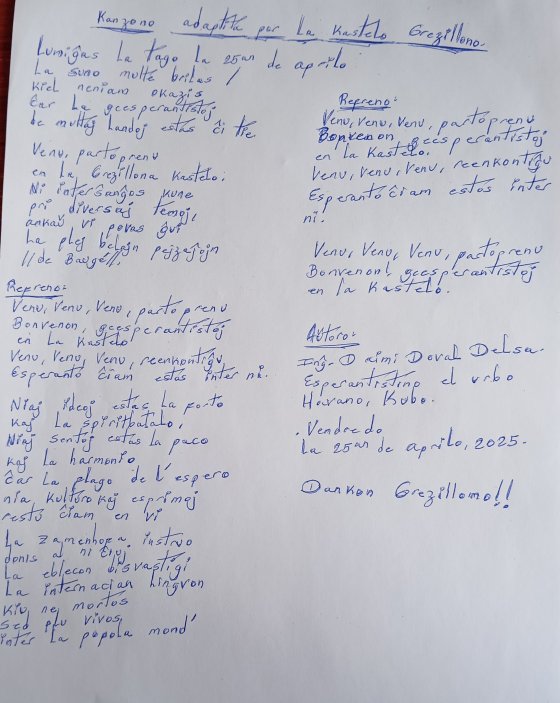 Kanzono adaptita por La Kastelo Grezillono.
Lumiĝas La tago La 25an de aprilo
La suno multe brilas /
Kiel neniam okazis
Ĉar La geesperantistoj
de multaj Landoj estas ĉi tie.
Venu, partoprenu
en La Grezillona Kastelo;
Ni interŝanĝos kune
pri diversaj temoj,
ankaŭ vi povas ĝui
La plej belajn pejzaĝojn
//de Baŭgé//.
Repreno:
Venu, Venu, Venu, partoprenu
Bonvenon, geesperantistoj
en La Kastelo
Venu, Venu, Venu, reenkontiĝu
Esperanto ĉiam estas inter ni.
Niaj ideoj estas La forto
Kaj La spiritbatalo,
Niaj sentoj estas la paco
Kaj La harmonio
Ĉar La plago de L' espero
nia Kulturo Kaj esprimoj
restu ĉiam en vi
La Zamenhofa instruo
donis al ni ĉiuj
La eblecon disvastigi
La internacian Lingvon
Kiu ne mortos
sed plu vivos
inter La popola mond'
Repreno:
Venu, Venu, Venu, partoprenu
Bonvenon geesperantistoj
en la Kastelo.
Venu, Venu, Venu, reenkontiĝu
Esperanto ĉiam estas inter
ni.
Venu, Venu, Venu, partoprenu
Bonvenon! geesperantistoj
en la Kastelo.
Aŭtoro:
Inĝ. Daimi Doval Delsa.
Esperantistino el urbo
Havano, Kubo.
. Vendredo
La 25an de aprilo, 2025.
Dankon Grezillono!!